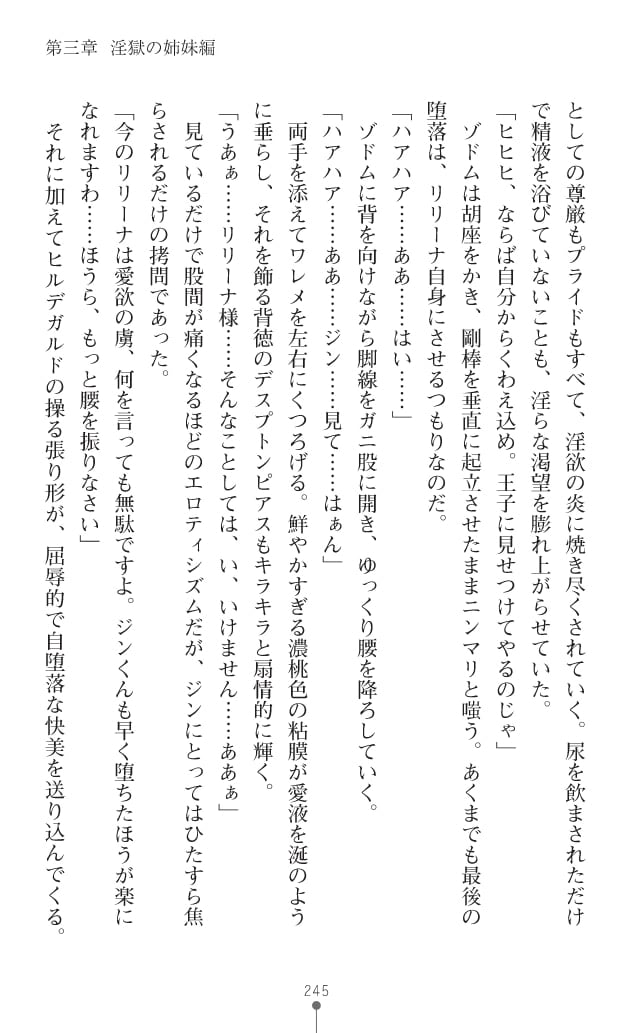 第三章 淫獄の姉妹編
としての尊厳もプライドもすべて、淫欲の炎に焼き尽くされていく。尿を飲まされただけ
で精液を浴びていないことも、淫らな渇望を膨れ上がらせていた。
「ヒヒヒ、ならば自分からくわえ込め。王子に見せつけてやるのじゃ」
ゾドムは胡座をかき、剛棒を垂直に起立させたままニンマリと嗤う。あくまでも最後の
堕落は、リリーナ自身にさせるつもりなのだ。
「ハアハア……ああ……はい……」
ゾドムに背を向けながら脚線をガニ股に開き、ゆっくり腰を降ろしていく。
「ハアハア……ああ……ジン……見て……はぁん」
両手を添えてワレメを左右にくつろげる。鮮やかすぎる濃桃色の粘膜が愛液を涎のよう
に垂らし、それを飾る背徳のデスプトンピアスもキラキラと扇情的に輝く。
「うあぁ……リリーナ様……そんなことしては、い、いけません……ああぁ」
見ているだけで股間が痛くなるほどのエロティシズムだが、ジンにとってはひたすら焦
らされるだけの拷問であった。
「今のリリーナは愛欲の虜、何を言っても無駄ですよ。ジンくんも早く堕ちたほうが楽に
なれますわ……ほうら、もっと腰を振りなさい」
それに加えてヒルデガルドの操る張り形が、屈辱的で自堕落な快美を送り込んでくる。
245